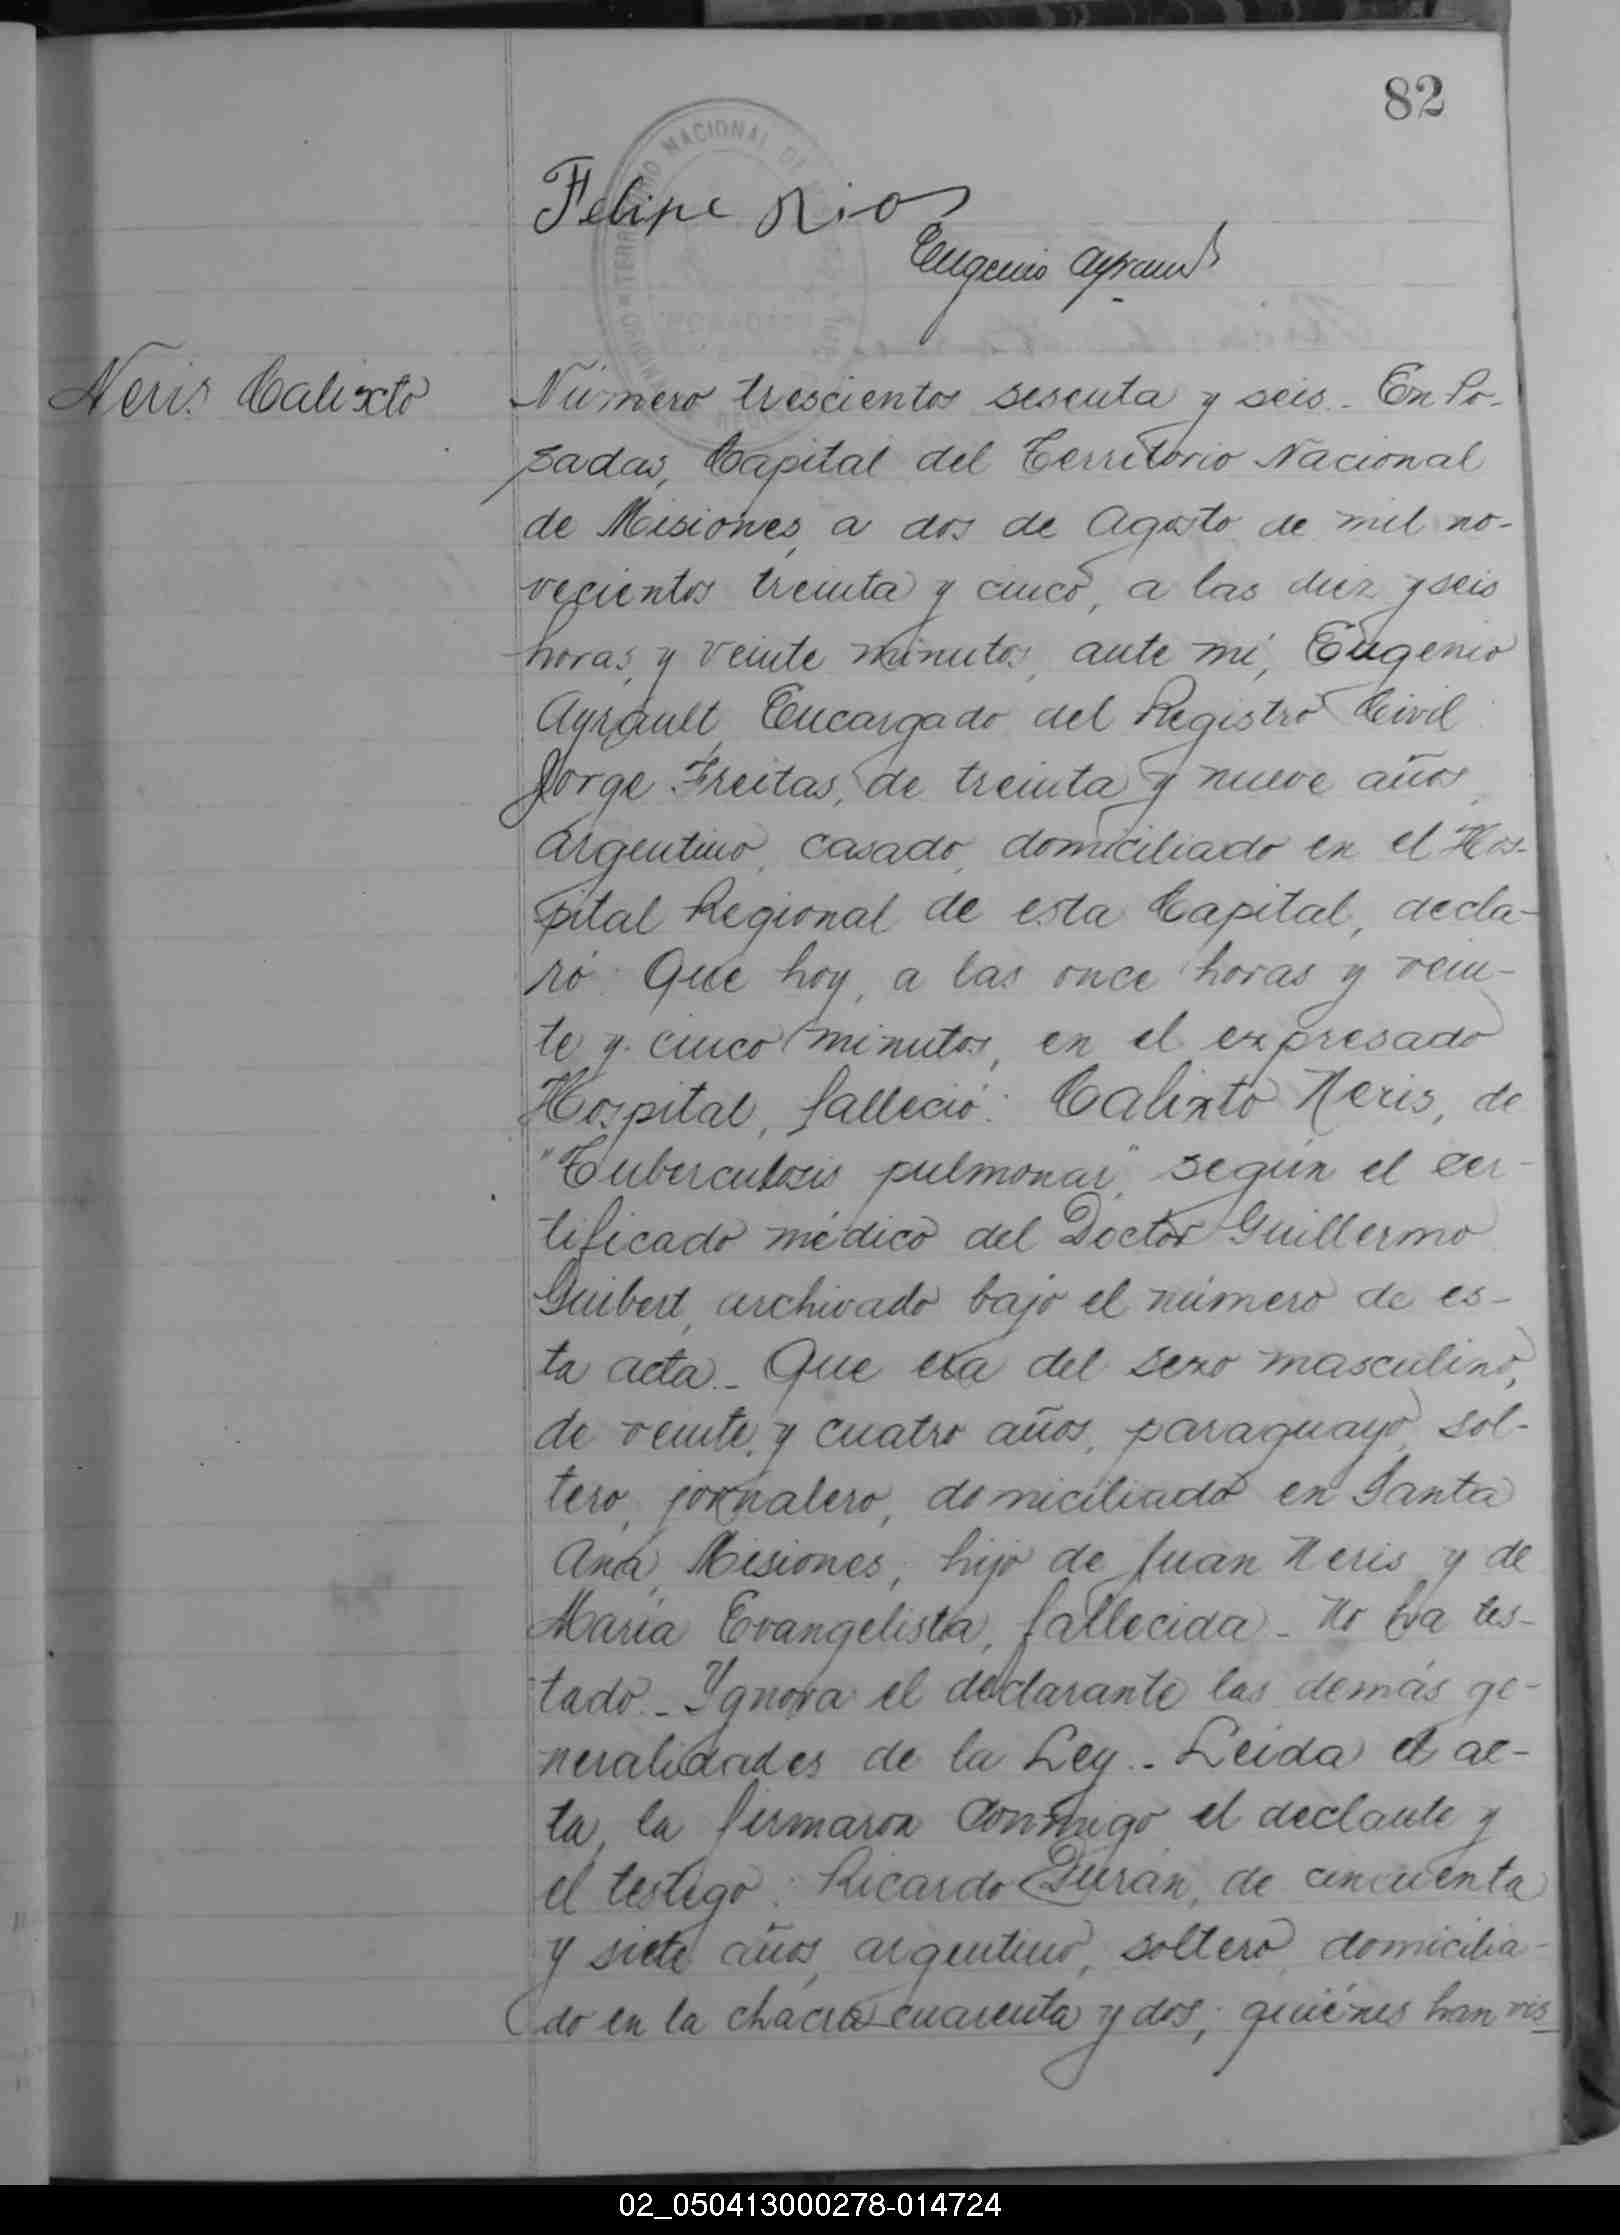 82
TERRITORIO NACIONAL DE
Felipe Rios
Eugenio Ayrault
Neris Calixto
Número trescientos sesenta y seis.- En Po-
sadas, Capital del Territorio Nacional
de Misiones, a dos de Agosto de mil no-
vecientos treinta y cinco, a las diez y seis
horas, y veinte minutos, ante mí, Eugenio
Ayrault, Encargado del Registro Civil
Jorge Freitas, de treinta y nueve años,
argentino, casado, domiciliado en el Hos-
pital Regional de esta Capital, decla-
ró: Que hoy, a las once horas y vein-
te y cinco minutos, en el expresado
Hospital, falleció: Calixto Neris, de
"Tuberculosis pulmonar", según el cer-
tificado médico del Doctor Guillermo
Guibert, archivado bajo el número de es-
ta acta.- Que era del sexo masculino,
de veinte y cuatro años, paraguayo, sol-
tero, jornalero, domiciliado en Santa
Ana, Misiones, hijo de Juan Neris y de
María Evangelista, fallecida.- No ha tes-
tado.- Ygnora el declarante las demás ge-
neralidades de la Ley.- Leída el ac-
ta, la firmaron conmigo el declante y
el testigo: Ricardo Durán, de cincuenta
y siete años, argentino, soltero, domicilia-
do en la chacra cuarenta y dos; quiénes han vis
02_050413000278-014724